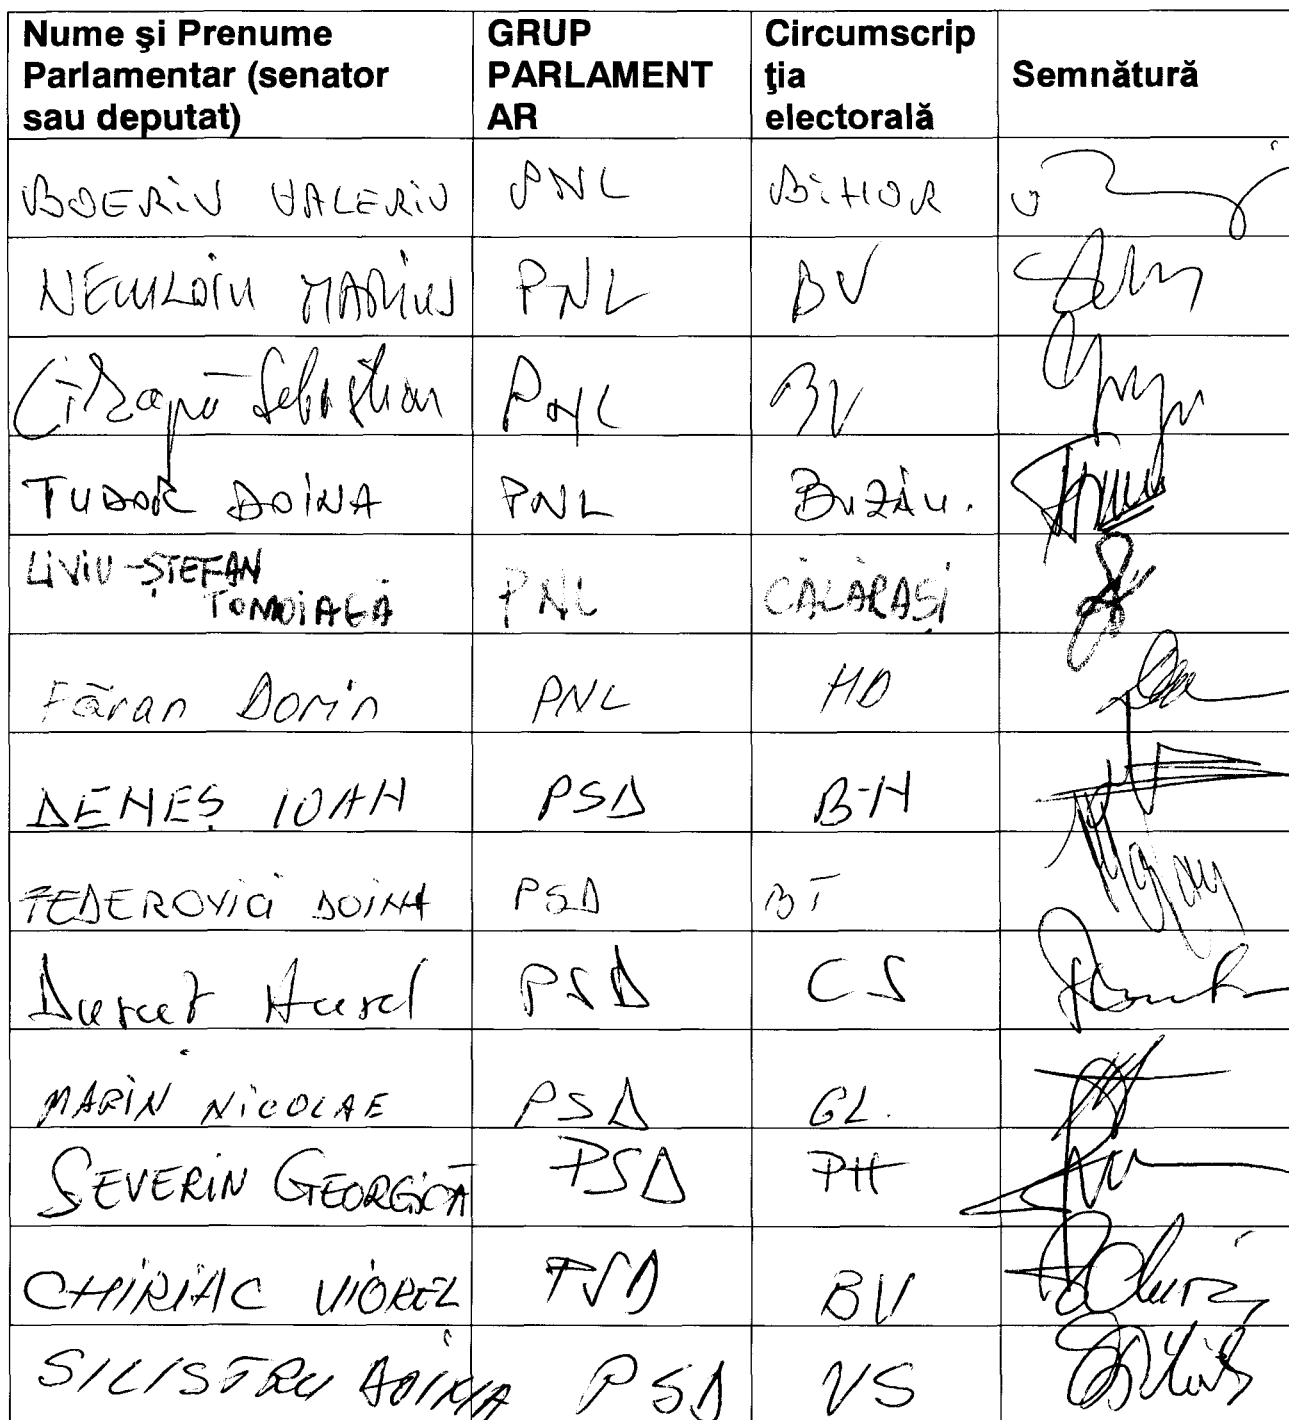 Nume şi Prenume
Parlamentar (senator
sau deputat)
GRUP
PARLAMENT
AR
Circumscrip
ţia
electorală
Semnătură
BOERIU VALERIU PNL BIHOR
NECULOIU MARIUS PNL BV
Cîțapü Sebastian PNL BV
TUDOR DOINA PNL BUZĂU.
LIVIU-ŞTEFAN
TOMOIAGĂ PNL CĂLĂRAŞI
Făran Dorin PNL HD
DENEŞ IOAN PSD B-N
FEDEROVICI DOINA PSD BT
Durut Aurel PSD CS
MARIN NICOLAE PSD GL.
SEVERIN GEORGICĂ PSD PH
CHIRIAC VIOREL PSD BV
SILISTRU DOINA PSD VS